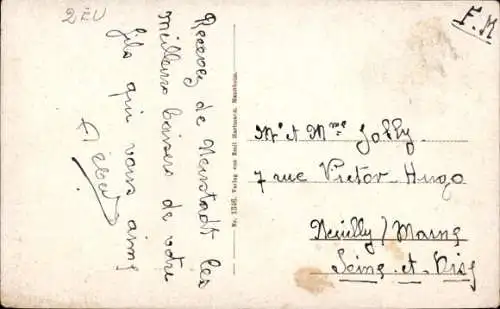 2EU
F. M
Recevez de Neustadt les
meilleurs baisers de votre
fils qui vous aime
No. 1346. Verlag von Emil Hartmann, Mannheim.
Mr et Mme Jolly.
7 rue Victor-Hugo
Neuilly / Marne
Seine-et-Oise